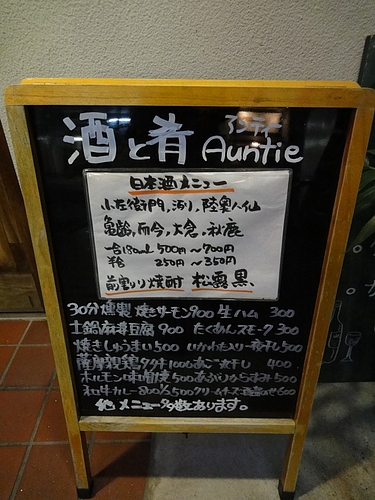 アンティー
酒と肴 Auntie
日本酒メニュー
小左衛門, 陸奥八仙
亀齢,而今,大倉,秋鹿
一合180ml 500円〜700円
半合 250円〜350円
前割り焼酎 松露 黒
30分燻製 焼きサーモン900 生ハム 300
土鍋麻婆豆腐 900 たくあんスモーク 300
焼きしょうまい500 いかわた入り一夜干し500
薩摩親鶏タタキ1000 あご煮干し 400
ホルモン味噌焼500 あぶりからすみ500
和牛カレー800 1/2 500 クリームチーズ酒盗のせ600
他メニュー多数あります。